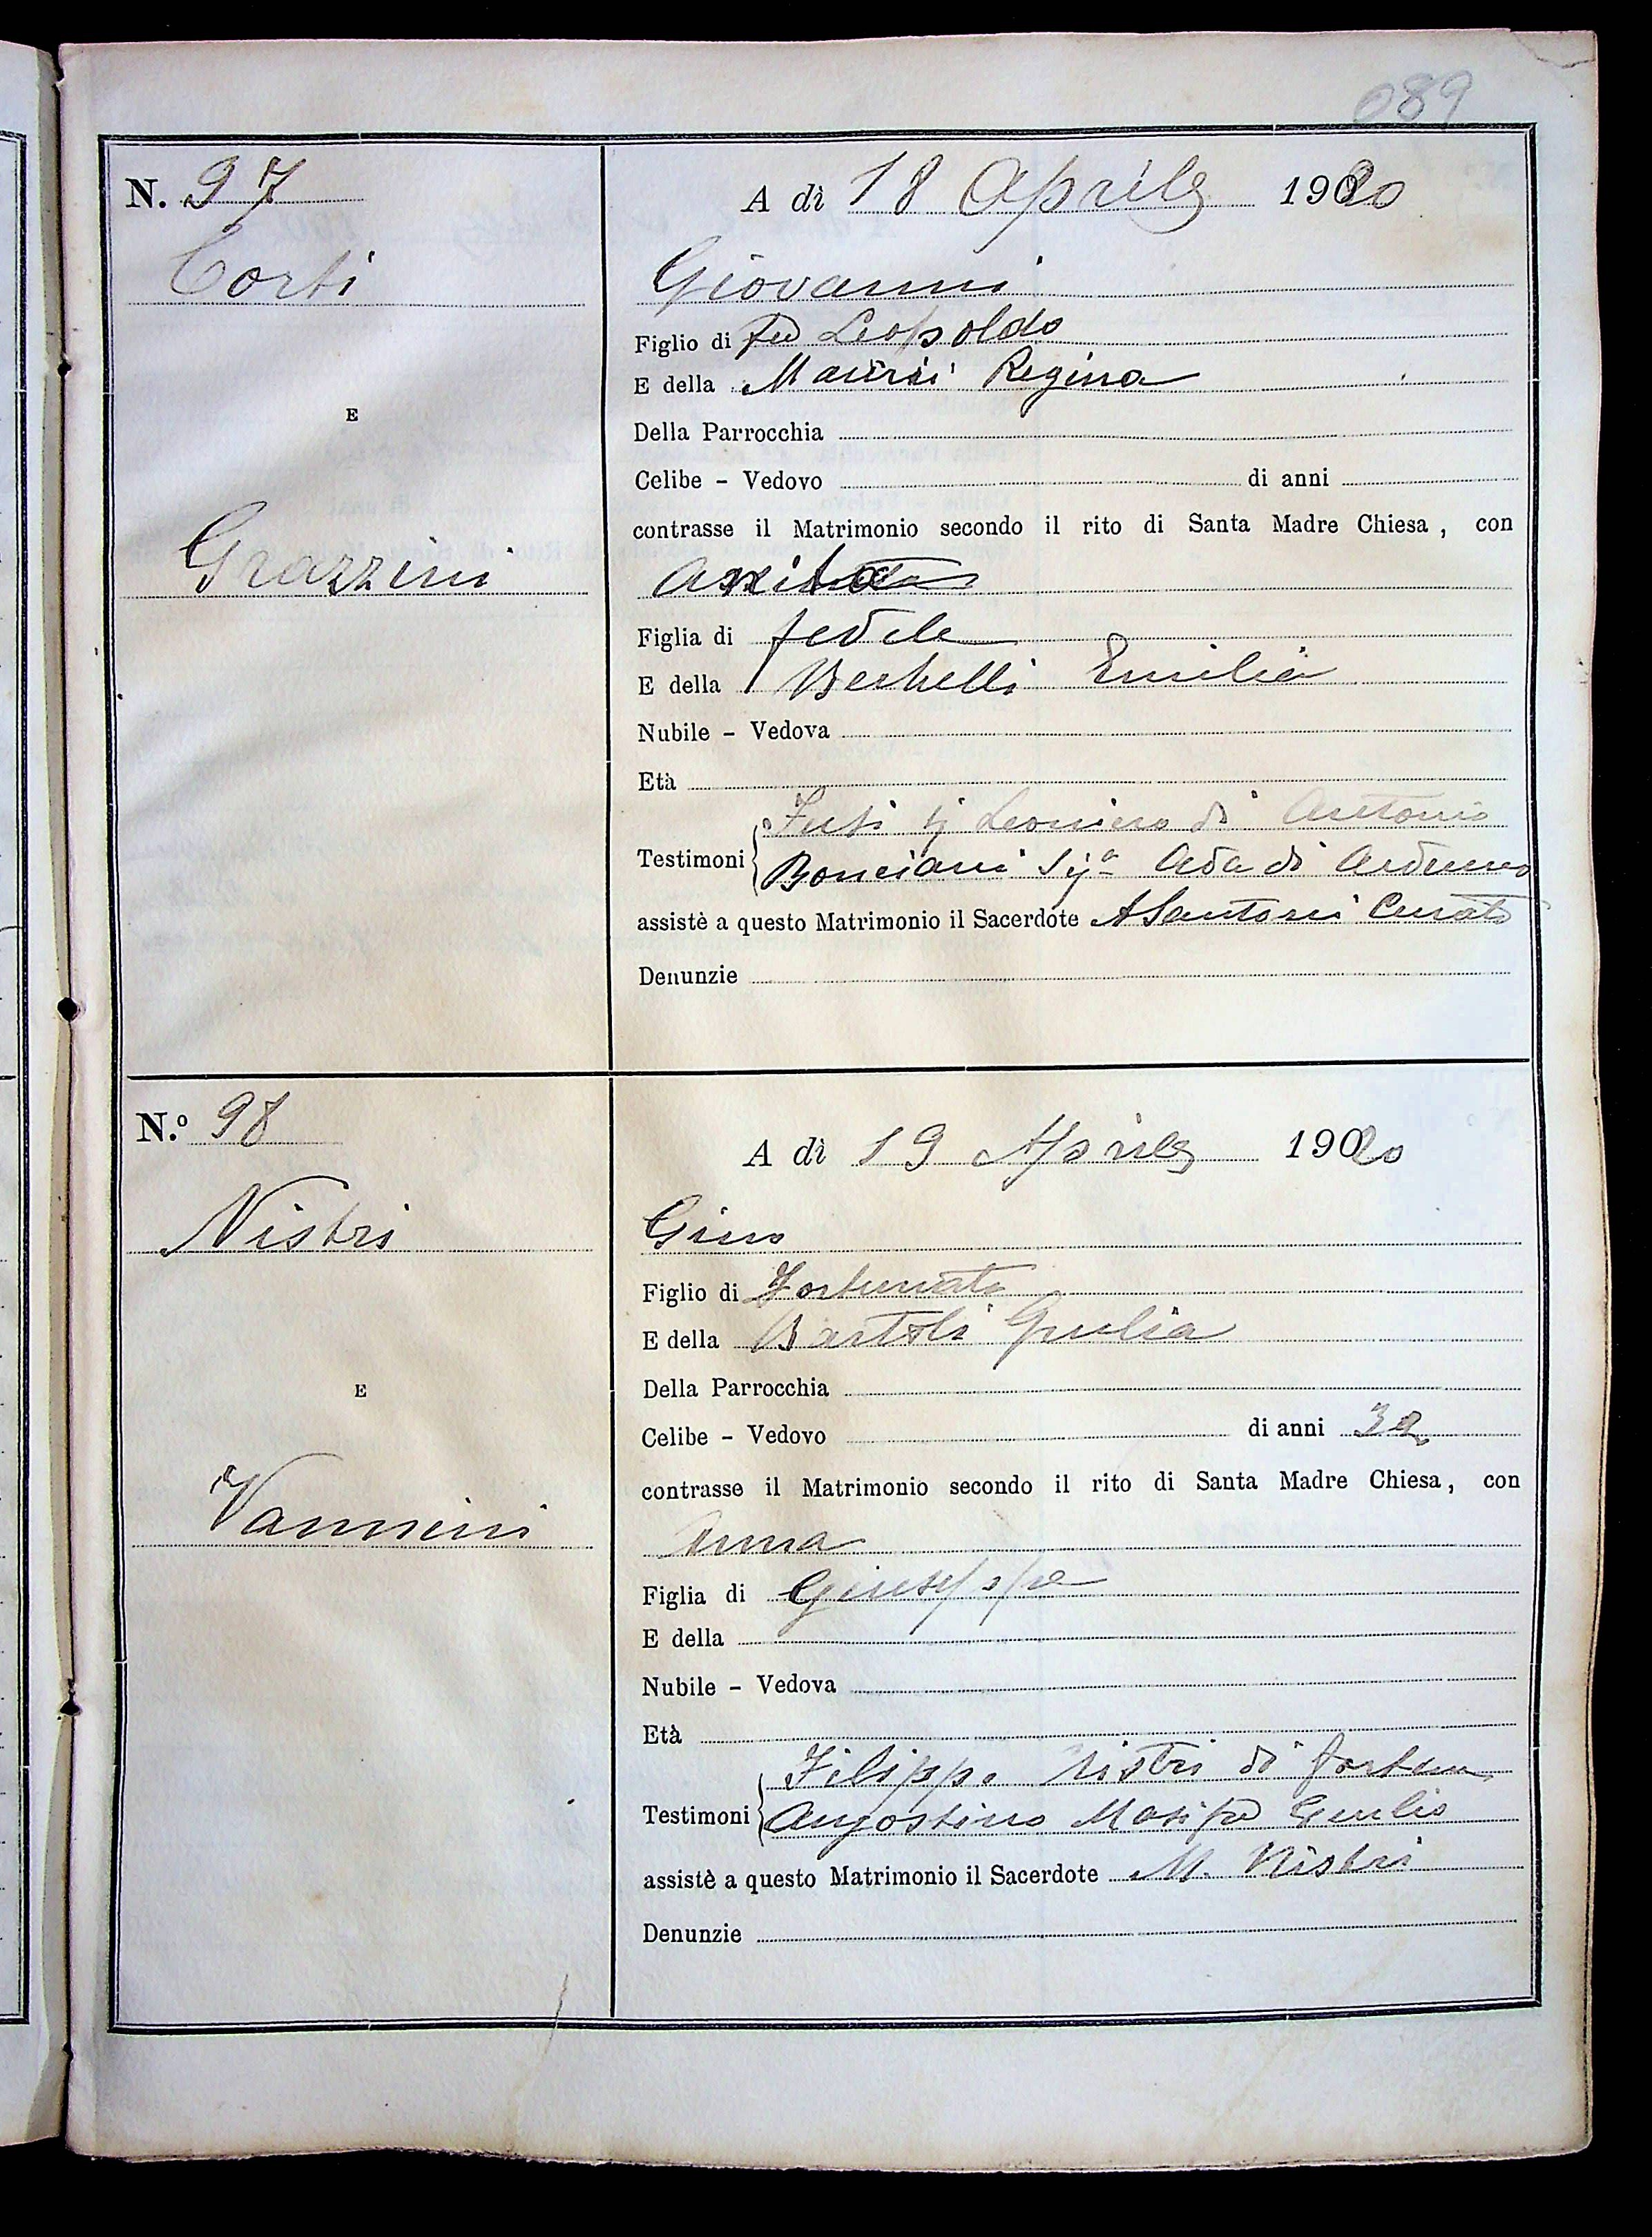 089
N. 97
A dì 18 Aprile 1920
Corti
Giovanni
Figlio di fu Leopoldo
E della Regina
E
Della Parrocchia
Celibe - Vedovo di anni
contrasse il Matrimonio secondo il rito di Santa Madre Chiesa, con
Grazzini
Figlia di fedele
E della Bechelli Emilia
Nubile - Vedova
Età
Testimoni di Antonio
Bonciani Sig.a Ada di
assistè a questo Matrimonio il Sacerdote A Santoni Curato
Denunzie
N.o 98
A dì 19 Aprile 1920
Nistri
Gino
Figlio di Fortunato
E della Bartoli Giulia
E
Della Parrocchia
Celibe - Vedovo di anni 32
contrasse il Matrimonio secondo il rito di Santa Madre Chiesa, con
Vannini
Anna
Figlia di Giuseppe
E della
Nubile - Vedova
Età
Testimoni Filippo Nistri di fortun
Angostino Masi fu Giulio
assistè a questo Matrimonio il Sacerdote M. Nistri
Denunzie